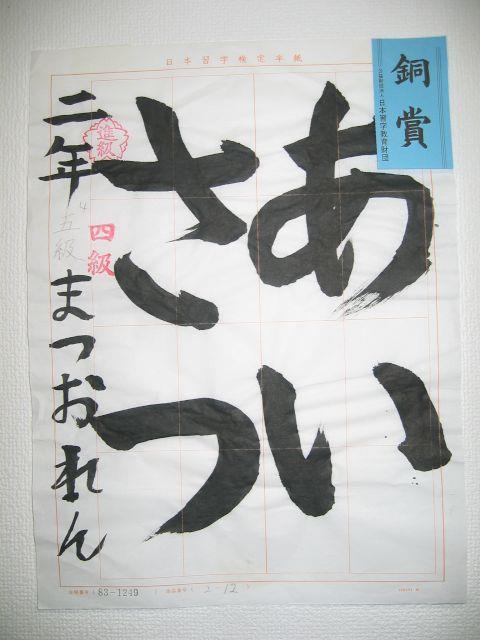 日本習字検定半紙
銅賞
公益財団法人 日本習字教育財団
あい
さつ
進級
四級
五級
二年 まつおれん
( 83-1249 ) ( 2-12 )